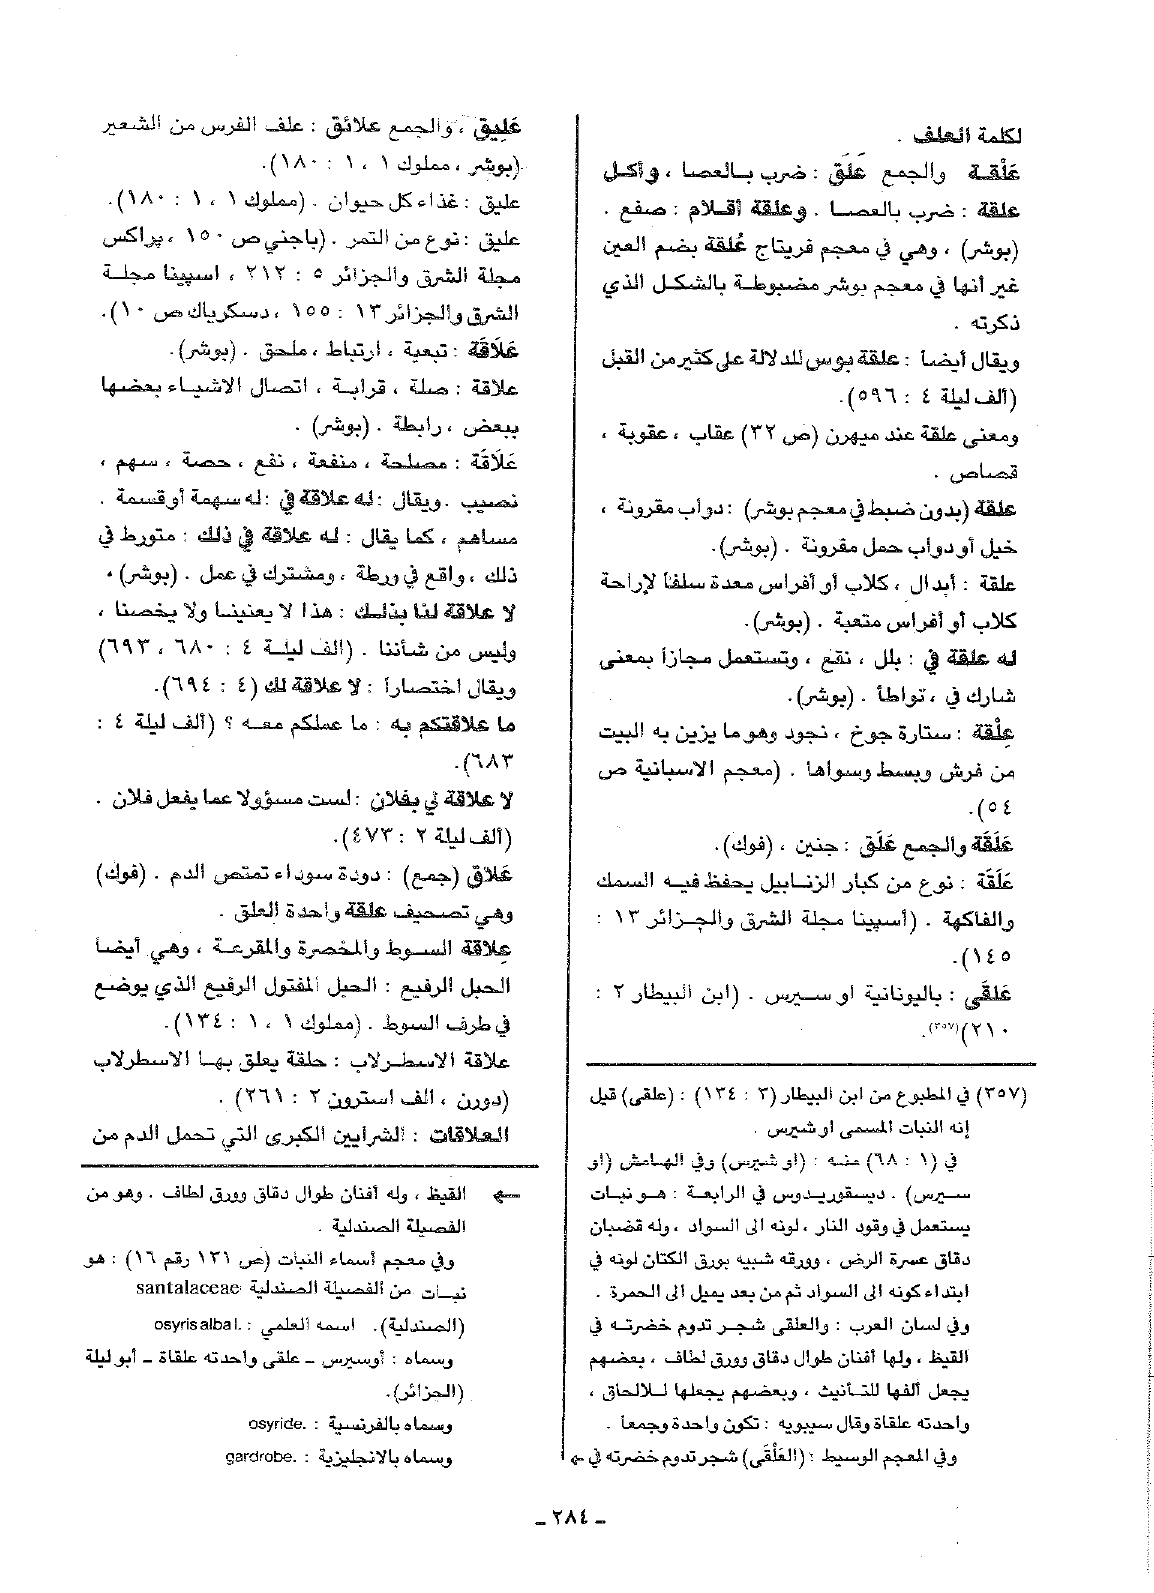 لكلمة العلف .
عَلْقـة والجمع عَلَق : ضرب بـالعصـا ، وأكـل
علقة : ضرب بالعصـا . وعلقة أقـلام : صفع .
(بوشر) ، وهي في معجم فريتاج عُلقة بضم العين
غير أنها في معجم بوشر مضبوطـة بالشكـل الذي
ذكرته .
ويقال أيضـا : علقة بوس للدلالة على كثير من القبل
(ألف ليلة ٤ : ٥٩٦).
ومعنى علقة عند ميهرن (ص ٣٢) عقاب ، عقوبة ،
قصاص .
علقة (بدون ضبط في معجم بوشر) : دواب مقرونة ،
خيل أو دواب حمل مقرونة . (بوشر).
علقة : أبدال ، كلاب أو أفراس معدة سلفاً لإراحة
كلاب أو أفراس متعبة . (بوشر).
له علقة في : بلل ، نقع ، وتستعمل مجازاً بمعنى
شارك في ، تواطأ . (بوشر).
عِلْقة : ستارة جوخ ، نجود وهو ما يزين به البيت
من فرش وبسط وسواها . (معجم الاسبانية ص
٥٤).
عَلَقَة والجمع عَلَق : جنين ، (فوك).
عَلَقَة : نوع من كبار الزنـابيل يحفظ فيـه السمك
والفاكهة . (أسبينا مجلة الشرق والجـزائر ١٣ :
١٤٥).
عَلقَى : باليونانية او سـيرس . (ابن البيطار ٢ :
٢١٠)(٣٥٧).
(٣٥٧) في المطبوع من ابن البيطار (٣ : ١٣٤) : (علقى) قيل
إنه النبات المسمى او شيرس .
في (١ : ٦٨) منـه : (او شيرس) وفي الهـامش (او
سـيرس) . ديسقوريدوس في الرابعـة : هـو نبـات
يستعمل في وقود النار ، لونه الى السواد ، وله قضبان
دقاق عسرة الرض ، وورقه شبيه بورق الكتان لونه في
ابتداء كونه الى السواد ثم من بعد يميل الى الحمرة .
وفي لسان العرب : والعلقى شجـر تدوم خضرتـه في
القيظ ، ولها أفنان طوال دقاق وورق لطاف ، بعضهم
يجعل ألفها للتأنيث ، وبعضهم يجعلها لـلالحاق ،
واحدته علقاة وقال سيبويه : تكون واحدة وجمعاً .
وفي المعجم الوسيط : (العَلْقَى) شجر تدوم خضرته في ←
عَلِيق ، والجمع علائق : علف الفرس من الشعير
(بوشر ، مملوك ١ ، ١ : ١٨٠).
عليق : غذاء كل حيوان . (مملوك ١ ، ١ : ١٨٠).
عليق : نوع من التمر . (باجني ص ١٥٠ ، پراكس
مجلة الشرق والجزائر ٥ : ٢١٢ ، اسپينا مجلـة
الشرق والجزائر ١٣ : ١٥٥ ، دسكرياك ص ١٠).
عَلَاقَة : تبعية ، ارتباط ، ملحق . (بوشر).
علاقة : صلة ، قرابـة ، اتصال الاشيـاء بعضها
ببعض ، رابطة . (بوشر) .
عَلَاقَة : مصلحة ، منفعة ، نفع ، حصة ، سهم ،
نصيب . ويقال : له علاقة في : له سهمة أو قسمة .
مساهم ، كما يقال : له علاقة في ذلك : متورط في
ذلك ، واقع في ورطة ، ومشترك في عمل . (بوشر) .
لا علاقة لنا بذلـك : هذا لا يعنينـا ولا يخصنا ،
وليس من شأننا . (ألف ليلـة ٤ : ٦٨٠ ، ٦٩٣)
ويقال اختصاراً : لا علاقة لك (٤ : ٦٩٤).
ما علاقتكم به : ما عملكم معـه ؟ (ألف ليلة ٤ :
٦٨٣).
لا علاقة لي بفلان : لست مسؤولا عما يفعل فلان .
(ألف ليلة ٢ : ٤٧٣).
عَلاق (جمع) : دودة سوداء تمتص الدم . (فوك)
وهي تصحيف علقة واحدة العلق .
عِلاقة السـوط والمخصرة والمقرعـة ، وهي أيضـا
الحبل الرفيع : الحبل المفتول الرفيع الذي يوضـع
في طرف السوط . (مملوك ١ ، ١ : ١٣٤).
علاقة الاسطـرلاب : حلقة يعلق بهـا الاسطرلاب
(دورن ، الف استرون ٢ : ٢٦١) .
العـلاقات : الشرايين الكبرى التي تحمل الدم من
← القيظ ، وله أفنان طوال دقاق وورق لطاف . وهو من
الفصيلة الصندلية .
وفي معجم أسماء النبات (ص ١٣١ رقم ١٦) : هو
نبـات من الفصيلة الصندلية santalaceae
(الصندلية). اسمه العلمي : osyrisalbal.
وسماه : أوسيرس ــ علقى واحدته علقاة ــ أبو ليلة
(الجزائر).
وسماه بالفرنسية : osyride.
وسماه بالانجليزية : gardrobe.
ــ ٢٨٤ ــ